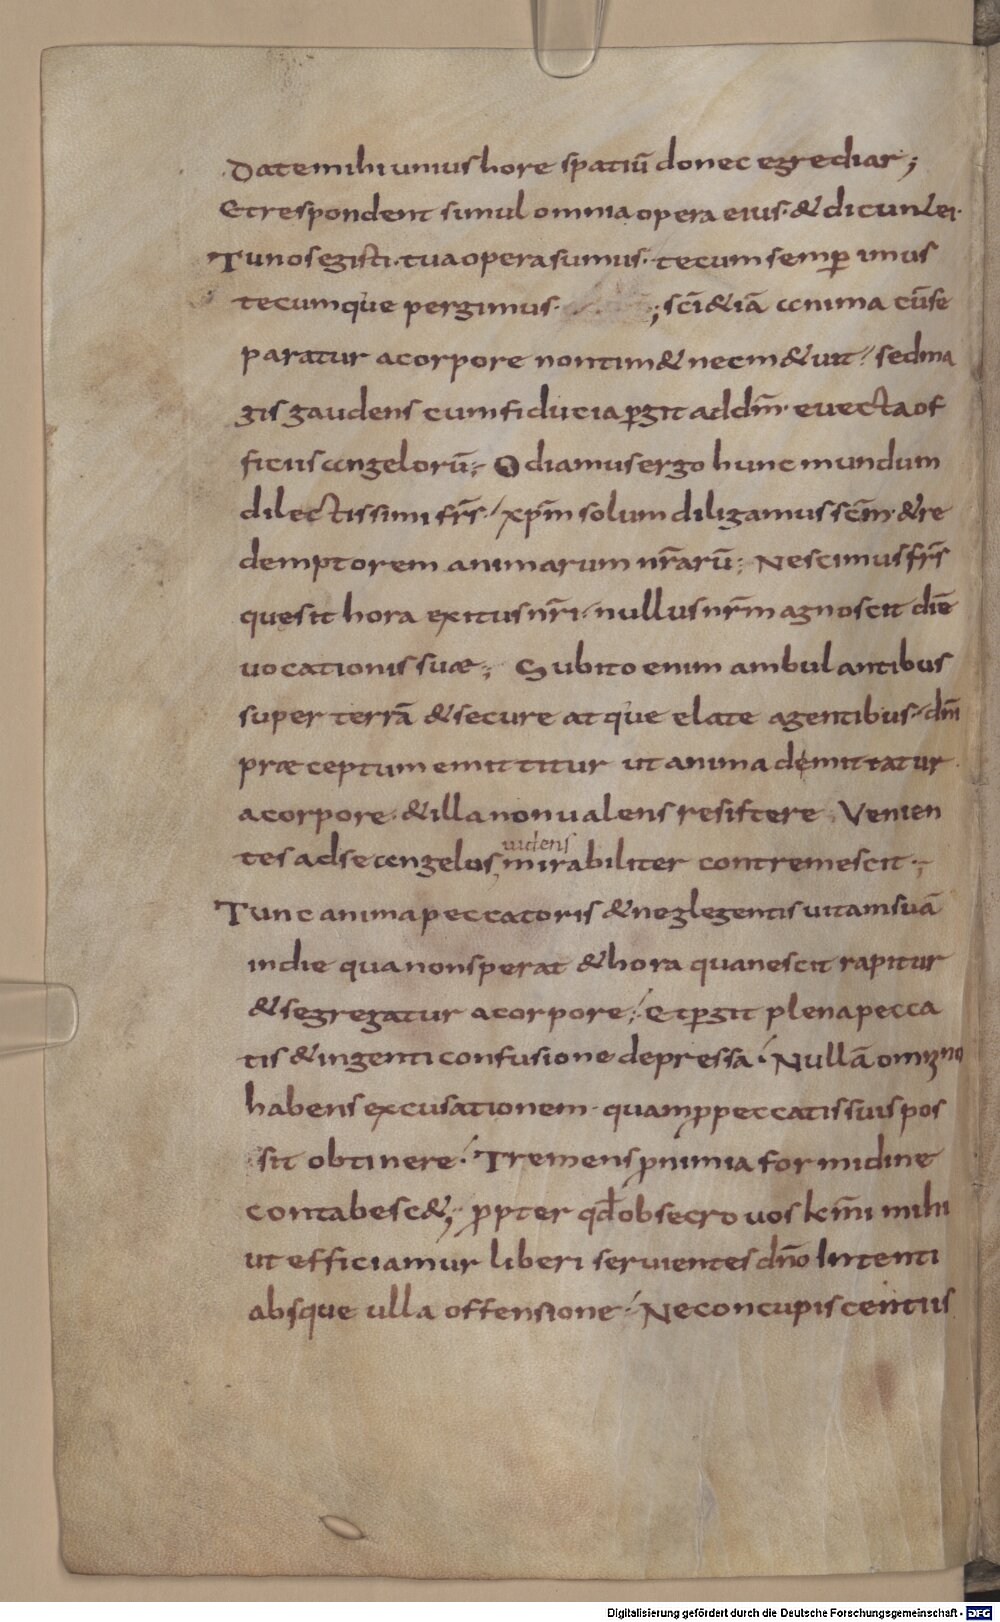 Date mihi unius hore spatiū donec egrediar;
Et respondent simul omnia opera eius· & dicunt ei·
Tu nos egisti· tua opera sumus· tecum semp̄ imus
tecumque pergimus· ; sc̄i & iā anima cū se
paratur a corpore non tim& nec m&uit· sed ma
gis gaudens cum fiducia ꝑgit ad dm̄· evecta of
ficiis angelorū; Odiamus ergo hunc mundum
dilectissimi frs̄· xp̄m solum diligamus scm̄· & re
demptorem animarum nr̄arū; Nescimus frs̄
que sit hora exitus nr̄i· nullus nr̄m agnoscit diē
uocationis suae; Subito enim ambulantibus
super terrā & secure atque elate agentibus· dn̄i
praeceptum emittitur ut anima demittatur
a corpore· & illa non ualens resistere· Venien
uidens
tes ad se angelos, mirabiliter contremescit·;
Tunc anima peccatoris & neglegentis uitam suā
in die qua non sperat & hora qua nescit rapitur
& segregatur a corpore; Et ꝑgit plena pecca
tis & ingenti confusione depressa· Nullā omnino
habens excusationem· quam ꝓ peccatis suis pos
sit obtinere· Tremens p̱ nimia formidine
contabesc&; ꝓpter qd̄ obsecro uos kmī mihi
ut efficiamur liberi seruientes dn̄o Intenti
absque ulla offensione· Ne concupiscentiis
Digitalisierung gefördert durch die Deutsche Forschungsgemeinschaft - DFG